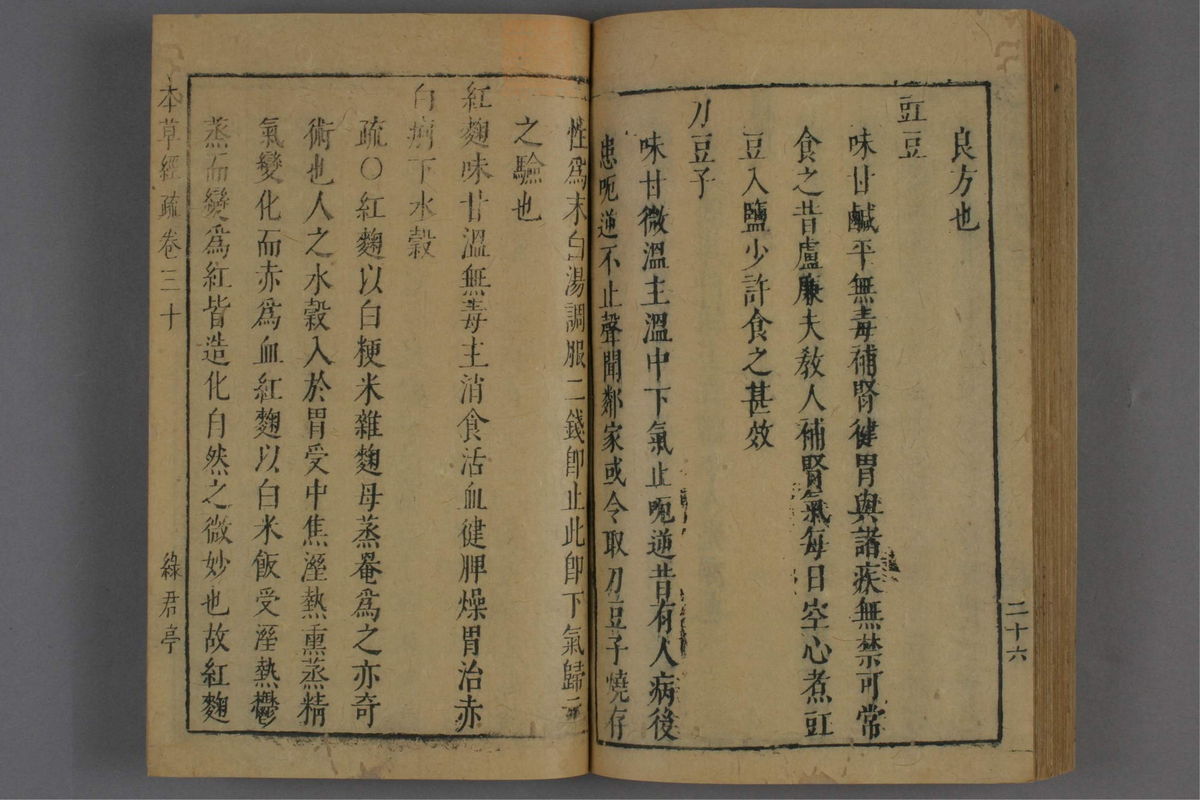 良方也
豇豆
味甘鹹平無毒補腎健胃與諸疾無禁可常
食之昔盧廉夫教人補腎氣每日空心煮豇
豆入鹽少許食之甚效
刀豆子
味甘微溫主溫中下氣止呃逆昔有人病後
患呃逆不止聲聞鄰家或令取刀豆子燒存
二十六
性爲末白湯調服二錢卽止此卽下氣歸元
之驗也
紅麴味甘溫無毒主消食活血健脾燥胃治赤
白痢下水穀
疏〇紅麴以白粳米雜麴母蒸罨爲之亦奇
術也人之水穀入於胃受中焦溼熱熏蒸精
氣變化而赤爲血紅麴以白米飯受溼熱鬱
蒸而變爲紅皆造化自然之微妙也故紅麴
本草經疏卷三十
綠君亭